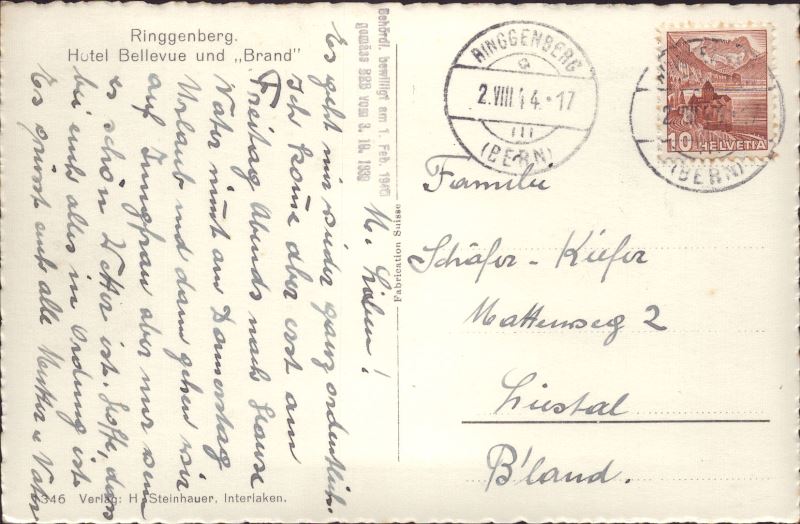 Ringgenberg.
Hotel Bellevue und „Brand"
Behördl. bewilligt am 1. Feb. 1940
gemäss BRB vom 3. 10. 1939
M. Lieben!
Es geht mir wieder ganz ordentlich.
Ich komme aber erst am
Freitag Abends nach Hause
Vater nimt am Donnerstag
Urlaub und dann gehen wir
auf Jungfrau aber nur wenn
es schön Wetter ist. Hoffe, dass
bei euch alles in Ordnung ist
Es grüsst euch alle Mutter u Vater
346 Verlag: H. Steinhauer, Interlaken.
Fabrication Suisse
RINGGENBERG
2.VIII.44.-17
(BERN)
10 HELVETIA
(BERN)
Familie
Schäfer-Kiefer
Mattenweg 2
Liestal
B'land.